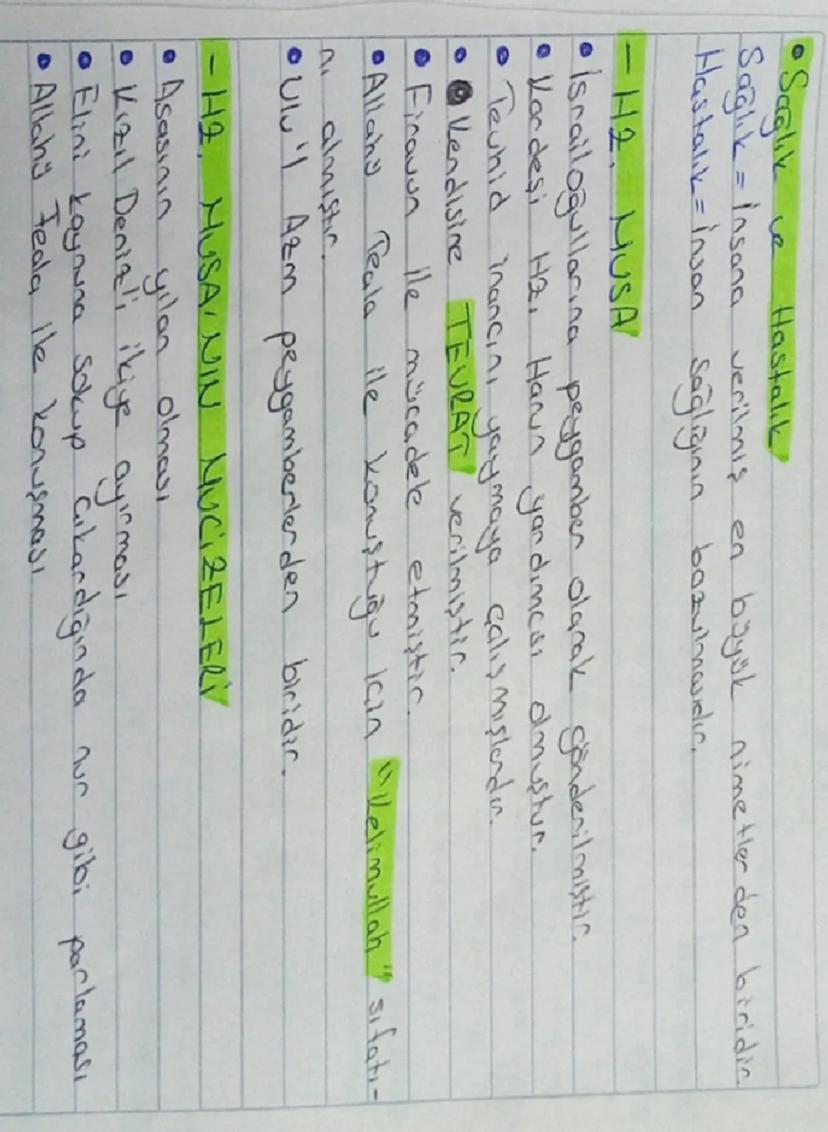 • Sağlık ve Hastalık
Sağlık = İnsana verilmiş en büyük nimetlerden biridir.
Hastalık = İnsan sağlığının bozulmasıdır.
- HZ. MUSA
• İsrailoğullarına peygamber olarak gönderilmiştir.
• Kardeşi Hz. Harun yardımcısı olmuştur.
• Tevhid inancını yaymaya çalışmışlardır.
• Kendisine TEVRAT verilmiştir.
• Firavun ile mücadele etmiştir.
• Allahu Teala ile konuştuğu için "Kelimullah" sıfatı-
nı almıştır.
• Ulu'l Azm peygamberlerden biridir.
- HZ. MUSA'NIN MUCİZELERİ
• Asasının yılan olması
• Kızıl Deniz'i ikiye ayırması
• Elini koynuna sokup çıkardığında nur gibi parlaması
• Allahu Teala ile konuşması